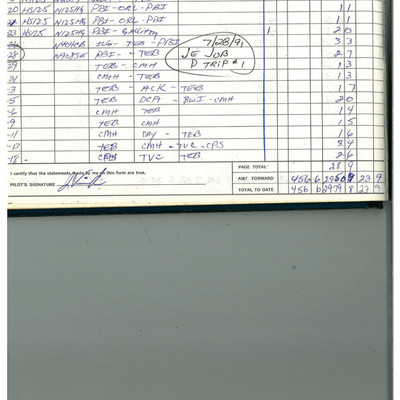 20 HS125 N125AG PBI - ORL - PBI 1 1
HS125 N125AG PBI - ORL - PBI 1 1
23 HS125 N125AG PBI - 1 2 0
ILG - TEB - PBI 3 3
28 PBI - TEB 2 7
7/28/91
JE JOB
D TRIP #1
29 TEB - CMH 1 3
31 CMH - TEB 1 3
-3 TEB - ACK - TEB 1 7
-5 TEB DCA - BWI - CMH 2 0
-6 CMH TEB 1 4
-9 TEB CMH 1 5
-11 CMH DAY - TEB 1 6
-13 TEB CMH - TVC - CPS 3 4
-18 CPS TVC TEB 2 6
I certify that the statements made by me on this form are true.
PILOT'S SIGNATURE
PAGE TOTAL 28 9
AMT. FORWARD 456 6 23 9
TOTAL TO DATE 456 6 2979 8 23 9